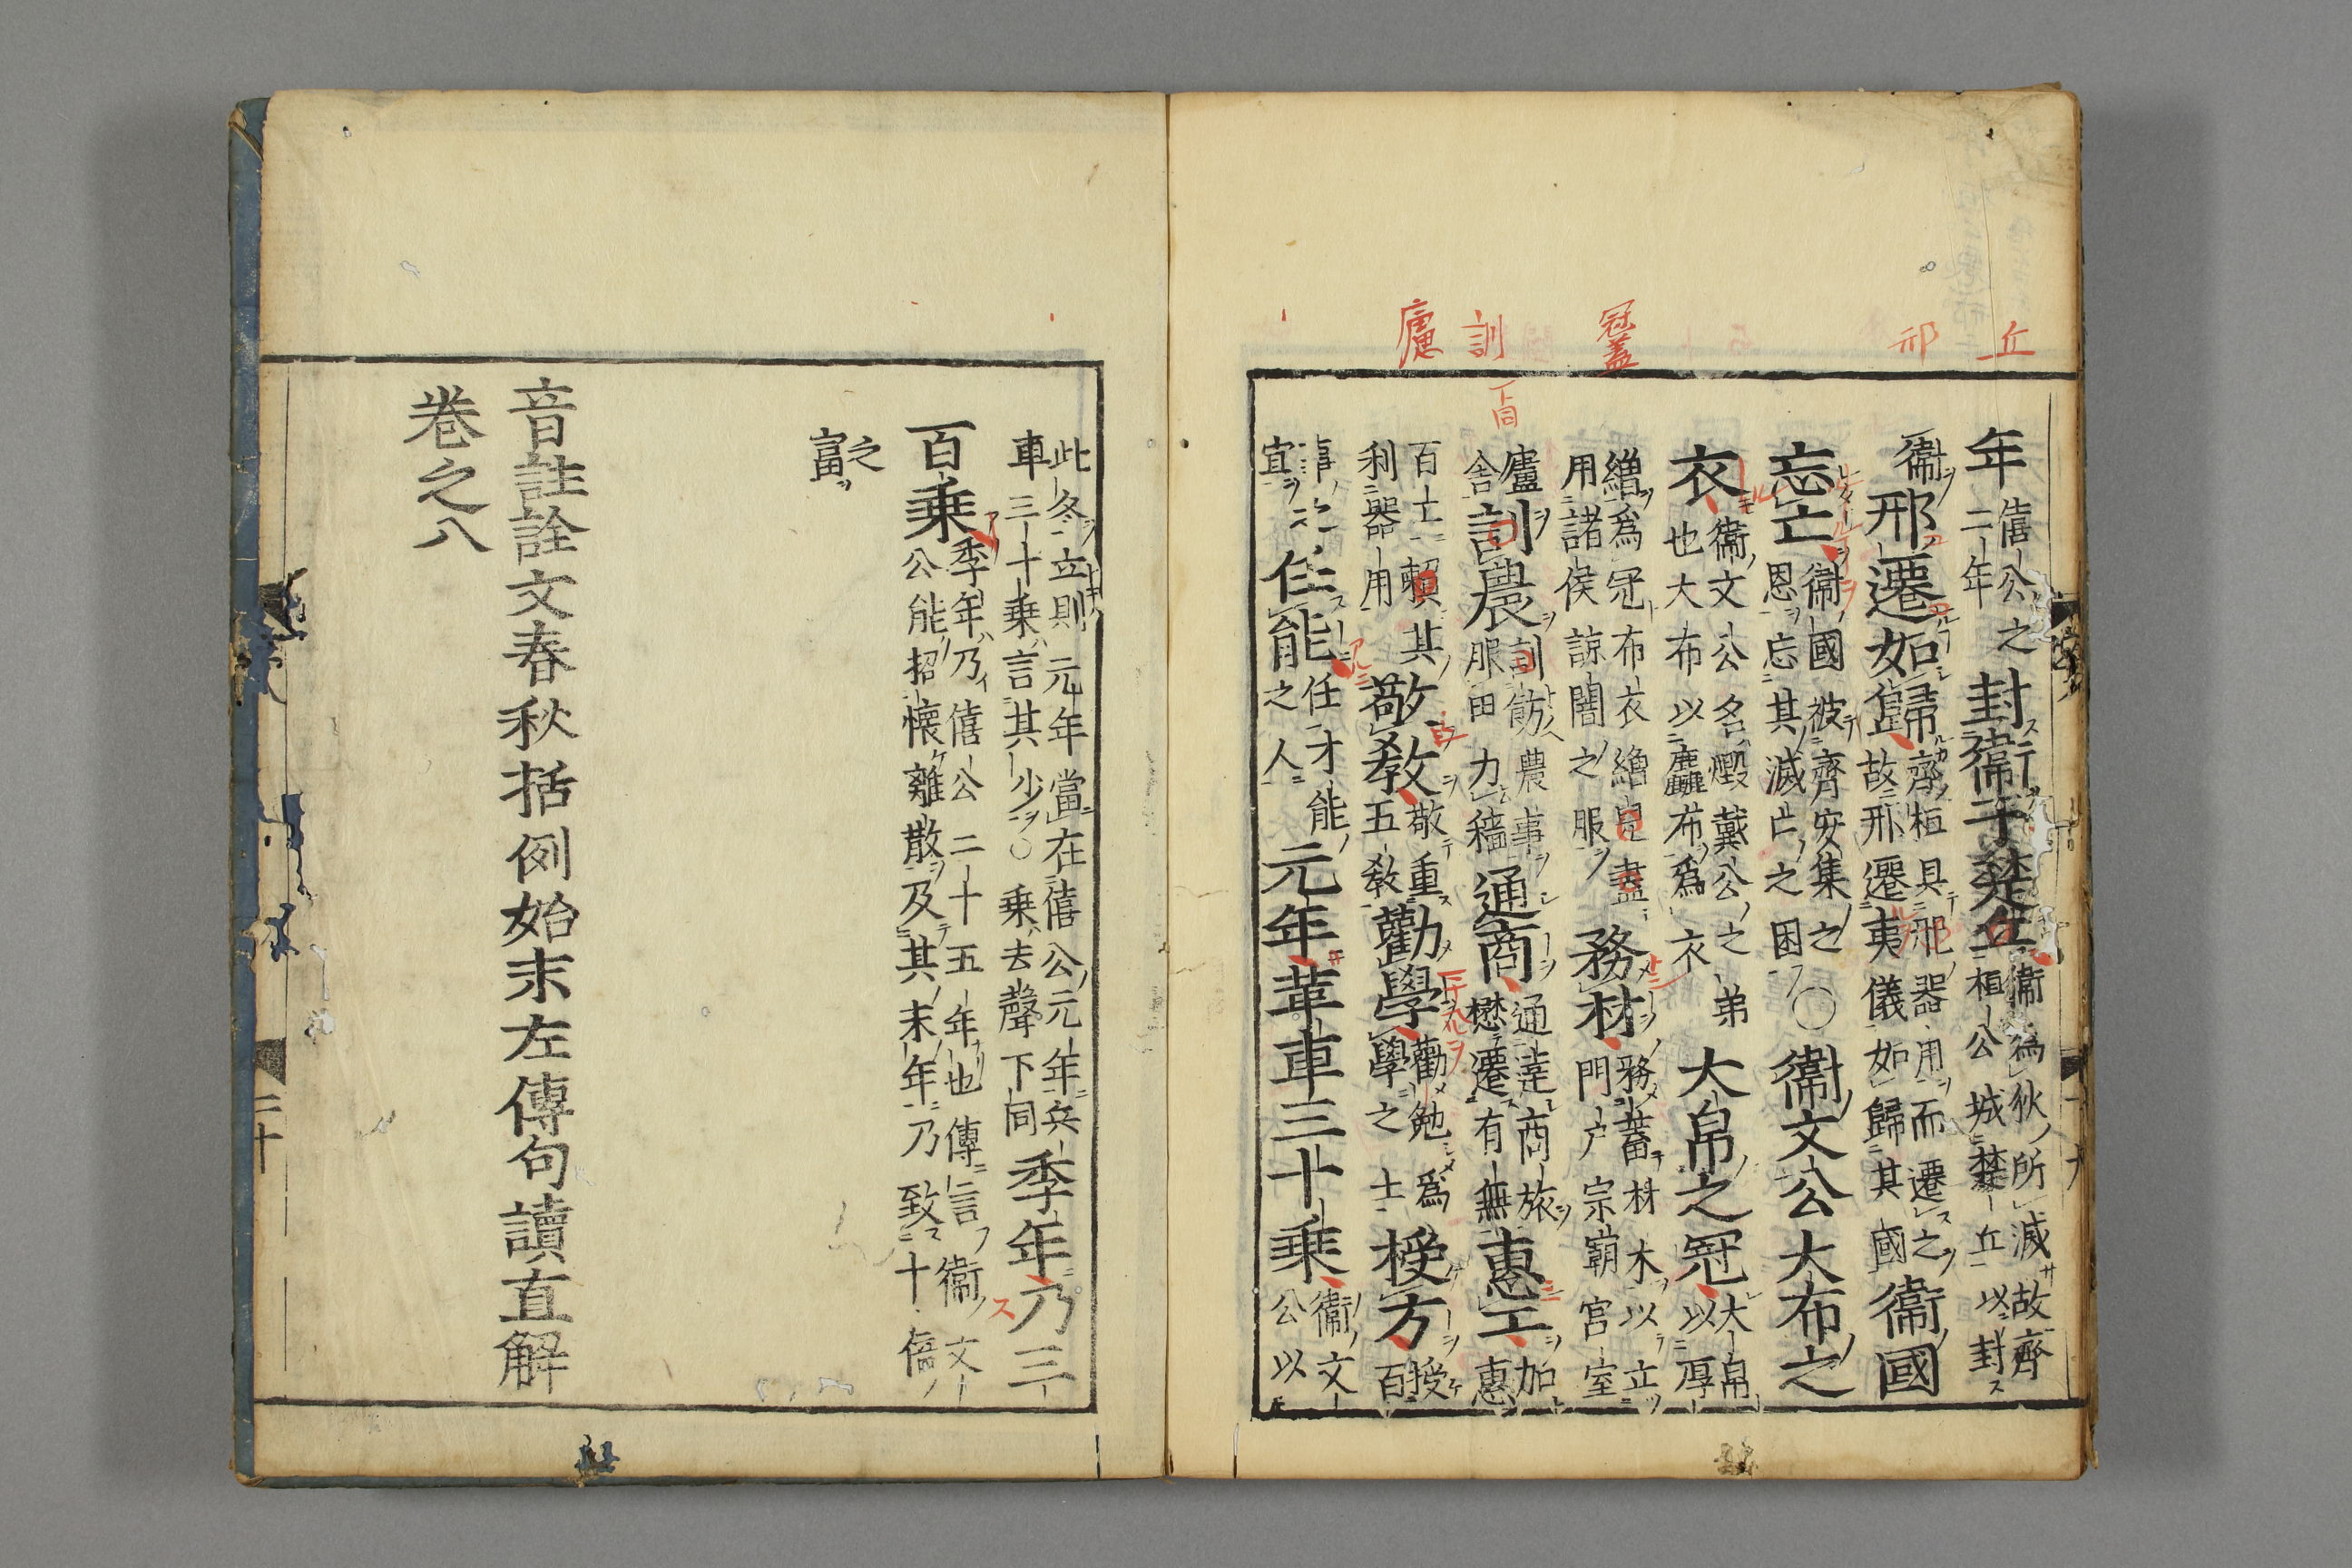 丘
邢
冠蓋
訓
廬
下同
年僖公之二年封衞于楚丘衞爲狄所滅故齊桓公城楚丘以封
衞邢遷如歸齊桓具邢器用而遷之故邢遷夷儀如歸其國衞國
忘亡衞國被齊安集之恩忘其滅亡之困〇衞文公大布之
衣衞文公名燬戴公之弟也大布以麤布爲衣大帛之冠大帛以厚
繒爲冠布衣繒皃盡用諸侯諒闇之服務材務蓄材木以立門戶宗廟宮室
廬舍訓農訓飭農事服田力穡通商通達商旅懋遷有無惠工加惠
百工賴其利器用敬教敬重五教勸學勸勉爲學之士授方授百
事之宜任能任才能之人元年革車三十乘衞文公以
此冬立則元年當在僖公元年兵車三十乘言其少〇乘去聲下同季年乃三
百乘季年乃僖公二十五年也傳言衞文公能招懷離散及其末年乃致十倍
之富
音註詮文春秋括例始末左傳句讀直解
卷之八
二十